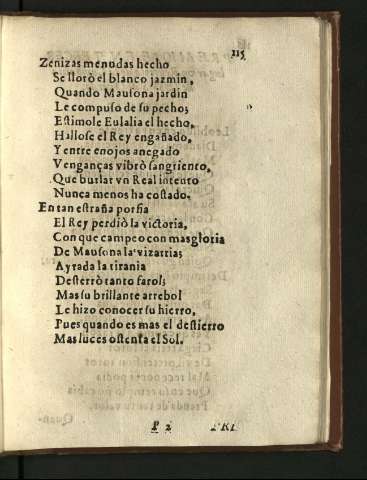 115
Zenizas menudas hecho
Se llorò el blanco jazmin,
Quando Mausona jardin
Le compuso de su pecho;
Estimole Eulalia el hecho,
Hallose el Rey engañado,
Y entre enojos anegado
Venganças vibrò sangriento,
Que burlar vn Real intento
Nunca menos ha costado.
En tan estraña porfia
El Rey perdiò la victoria,
Con que campeo con mas gloria
De Mausona la vizarria;
Ayrada la tirania
Desterrò tanto farol;
Mas su brillante arrebol
Le hizo conocer su hierro,
Pues quando es mas el destierro
Mas luces ostenta el Sol.
P 2